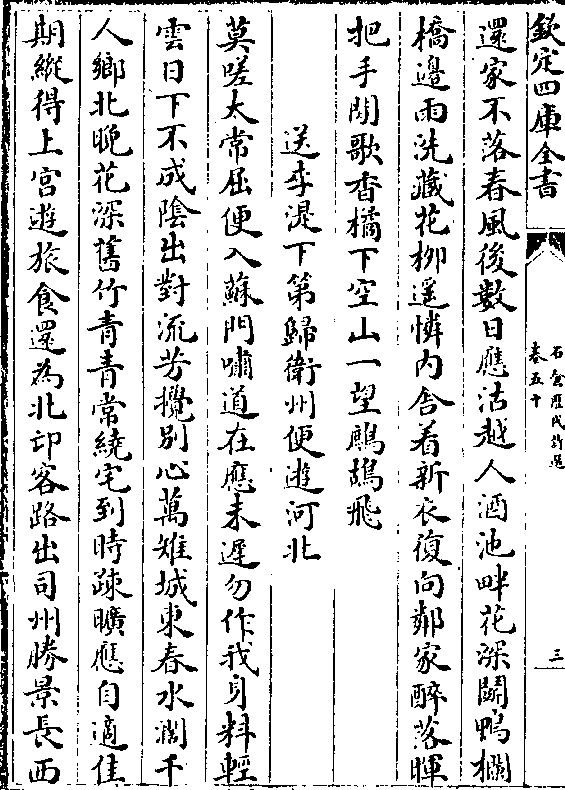 欽定四庫全書
還家不落春風後數日應沽越人酒池畔花深鬬鴨欄
橋邊雨洗藏花柳遥憐内舍着新衣復向鄰家醉落暉
把手閒歌香橘下空山一望鷓鴣飛
送李湜下第歸衛州便遊河北
莫嗟太常屈便入蘇門嘯道在應未遲勿作我身料輕
雲日下不成陰出對流芳攪别心萬雉城東春水濶千
人鄉北晚花深舊竹青青常繞宅到時疎曠應自適佳
期縱得上宮遊旅食還為北邙客路出司州勝景長西
石倉歷代詩選
卷五十
三